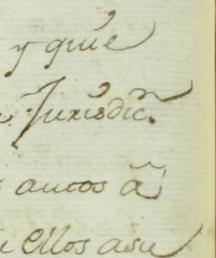 y que
Jurisdic.ⁿ
autos á
ellos asu